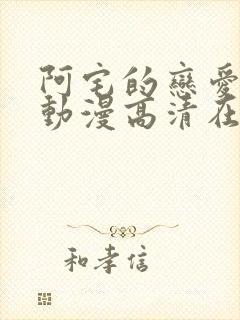 阿宅的戀愛
動漫高清在
和孝信